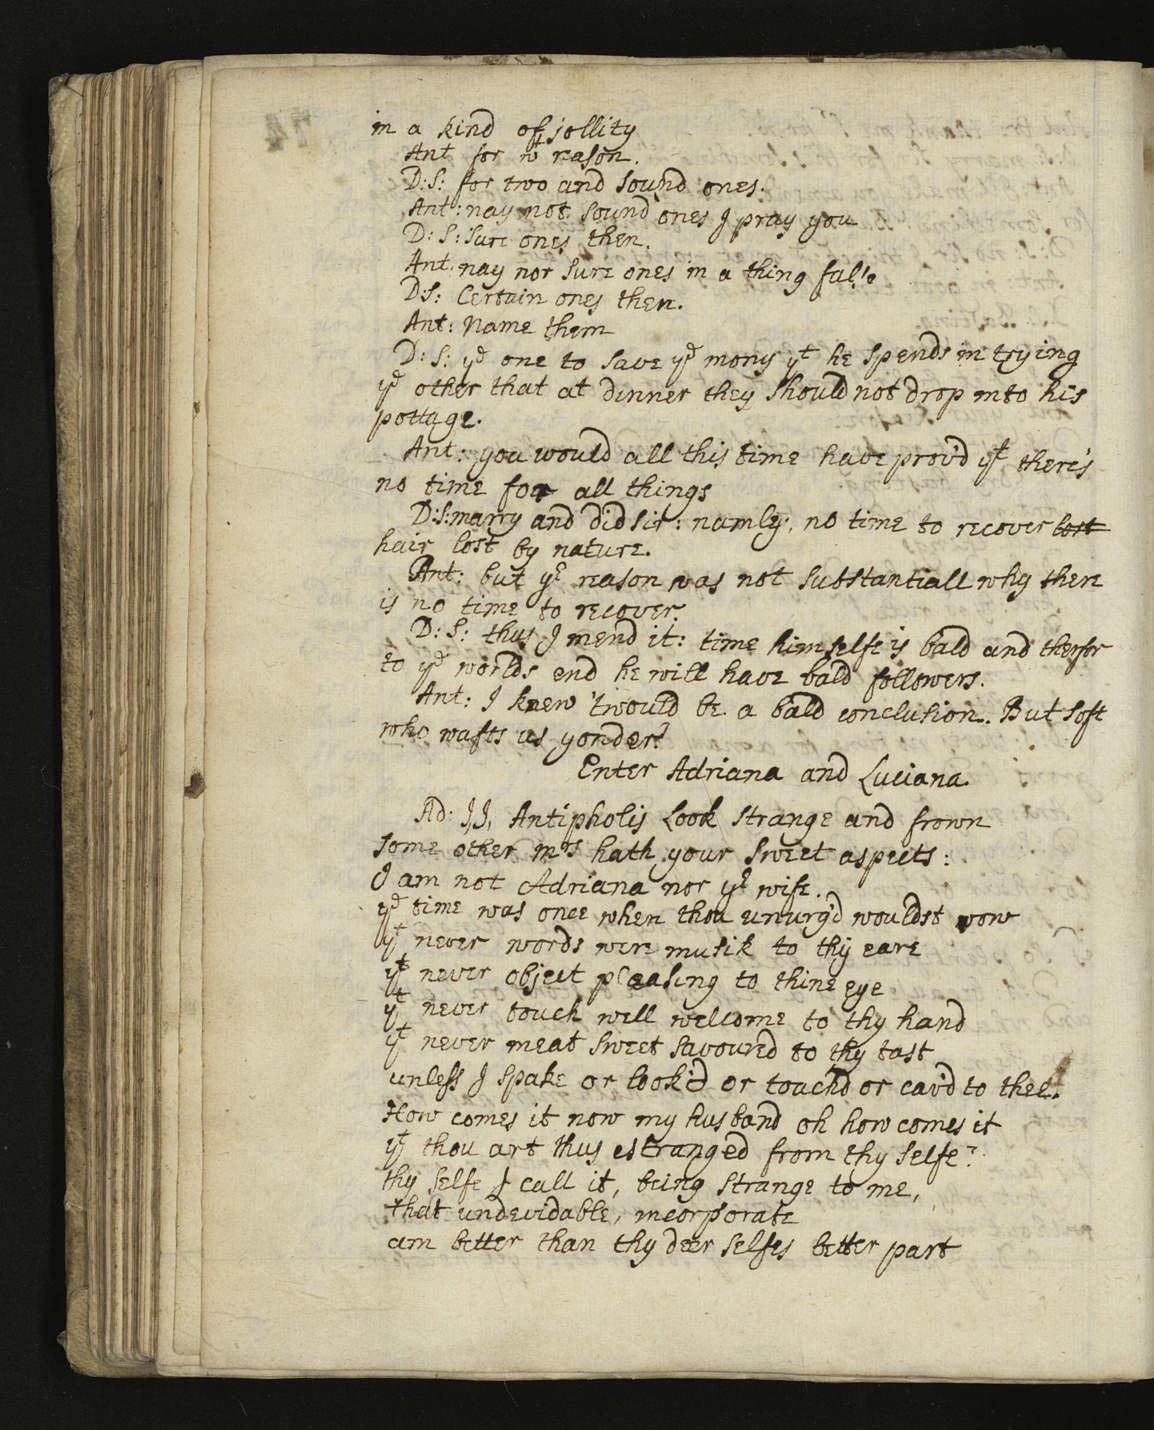 in a kind of jollity
Ant for wt reason.
D:S: for two and sound ones.
Ant: nay not sound ones I pray you
D:S: sure ones then.
Ant: nay nor sure ones in a thing
D:S: Certain ones then.
Ant: Name them
D:S: ye one to save ye mony yt he spends in trying
ye other that at dinner they should not drop into his
pottage.
Ant: you would all this time have prov'd yt there's
no time for all things
D:S: marry and did sir: namly, no time to recover lost
hair lost by nature.
Ant: but yr reason was not substantiall why there
is no time to recover.
D:S: thus I mend it: time himselfe is bald and therfor
to ye worlds end he will have bald followers.
Ant: I knew 'twould be a bald conclusion. But soft
who wafts us yonder?
Enter Adriana and Luciana.
Ad: I,I, Antipholis look strange and frown
some other mrs hath your sweet aspects:
I am not Adriana nor yr wife.
ye time was once when thou unurg'd wouldst vow
yt never words were musik to thy eare
yt never object pleasing to thine eye
yt never touch well welcome to thy hand
yt never meat sweet savoured to thy tast
unless I spake or look'd or touchd or cav'd to thee.
How comes it now my husband oh how comes it
yt thou art thus estranged from thy selfe?
thy selfe I call it, being strange to me,
that undevidable, incorporate
am better than thy deer selfes better part